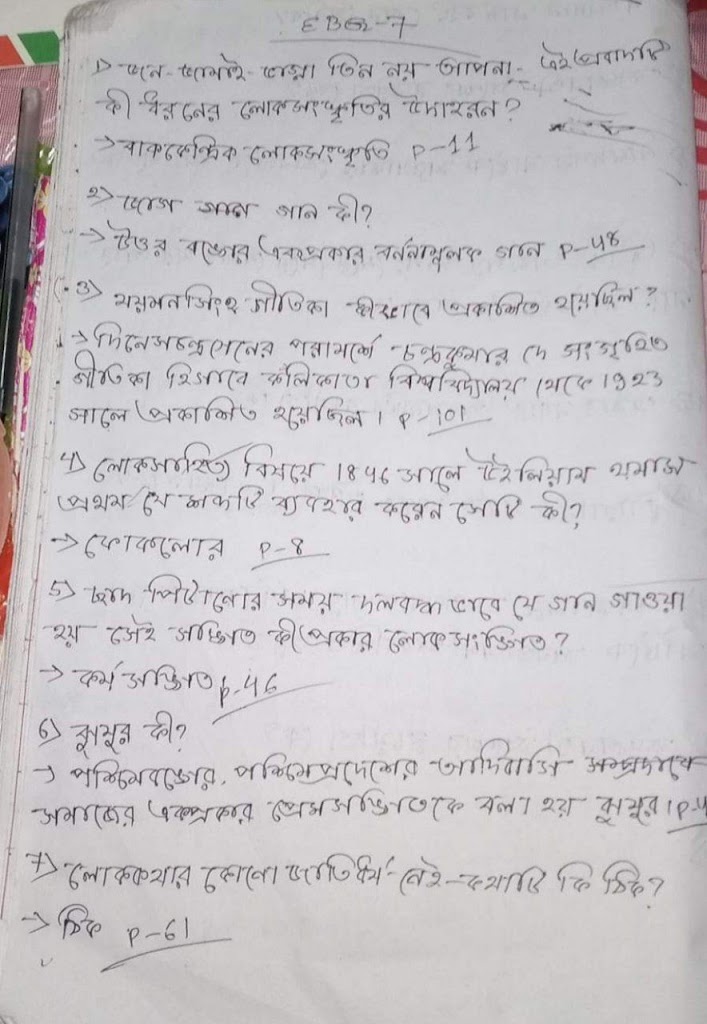 EBG-7
1) জন-জামাই-ভাগ্না তিন নয় আপনা- এই প্রবাদটি
কী ধরনের লোকসংস্কৃতির উদাহরন?
→ বাককেন্দ্রিক লোকসংস্কৃতি P-11
2) জাগ গান কী?
→ উত্তর বঙ্গের একপ্রকার বর্ননামূলক গান P-48
3) ময়মনসিংহ গীতিকা কীভাবে প্রকাশিত হয়েছিল?
→ দিনেসচন্দ্রসেনের পরামর্শে চন্দ্রকুমার দে সংগৃহিত
গীতিকা হিসাবে কলিকাতা বিশ্ববিদ্যালয় থেকে 1923
সালে প্রকাশিত হয়েছিল। P-101
4) লোকসাহিত্য বিষয়ে 1846 সালে উইলিয়াম থমাস
প্রথম যে শব্দটি ব্যবহার করেন সেটি কী?
→ ফোকলোর P-8
5) ছাদ পিটানোর সময় দলবদ্ধ ভাবে যে গান গাওয়া
হয় সেই সঙ্গিত কী প্রকার লোকসংঙ্গিত?
→ কর্ম সঙ্গিত P-46
6) ঝুমুর কী?
→ পশ্চিমবঙ্গের, পশ্চিমপ্রদেশের আদিবাসি
সমাজের একপ্রকার প্রেমসঙ্গিতকে বলা হয় ঝুমুর। P-4
7) লোককথার কোনো জাতিধর্ম নেই-কথাটি কি ঠিক?
→ ঠিক P-61